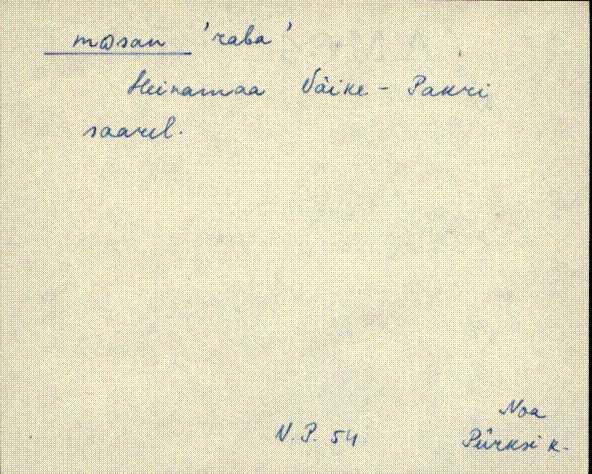 mosan 'raba'
Heinamaa Väike-Pakri
saarel.
V.P. 54
Noa
Pürksi k.